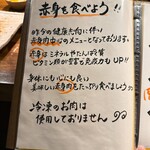 赤身を食べよう!!
昨今の健康志向に伴い
赤身肉中心のメニューとなっております。
赤身はミネラルやたんぱく質
ビタミン群が豊富で免疫力もUP!!
身体にも心にも良い
美味しい赤身肉をたっぷり食べましょう
◇冷凍のお肉は
使用しておりません